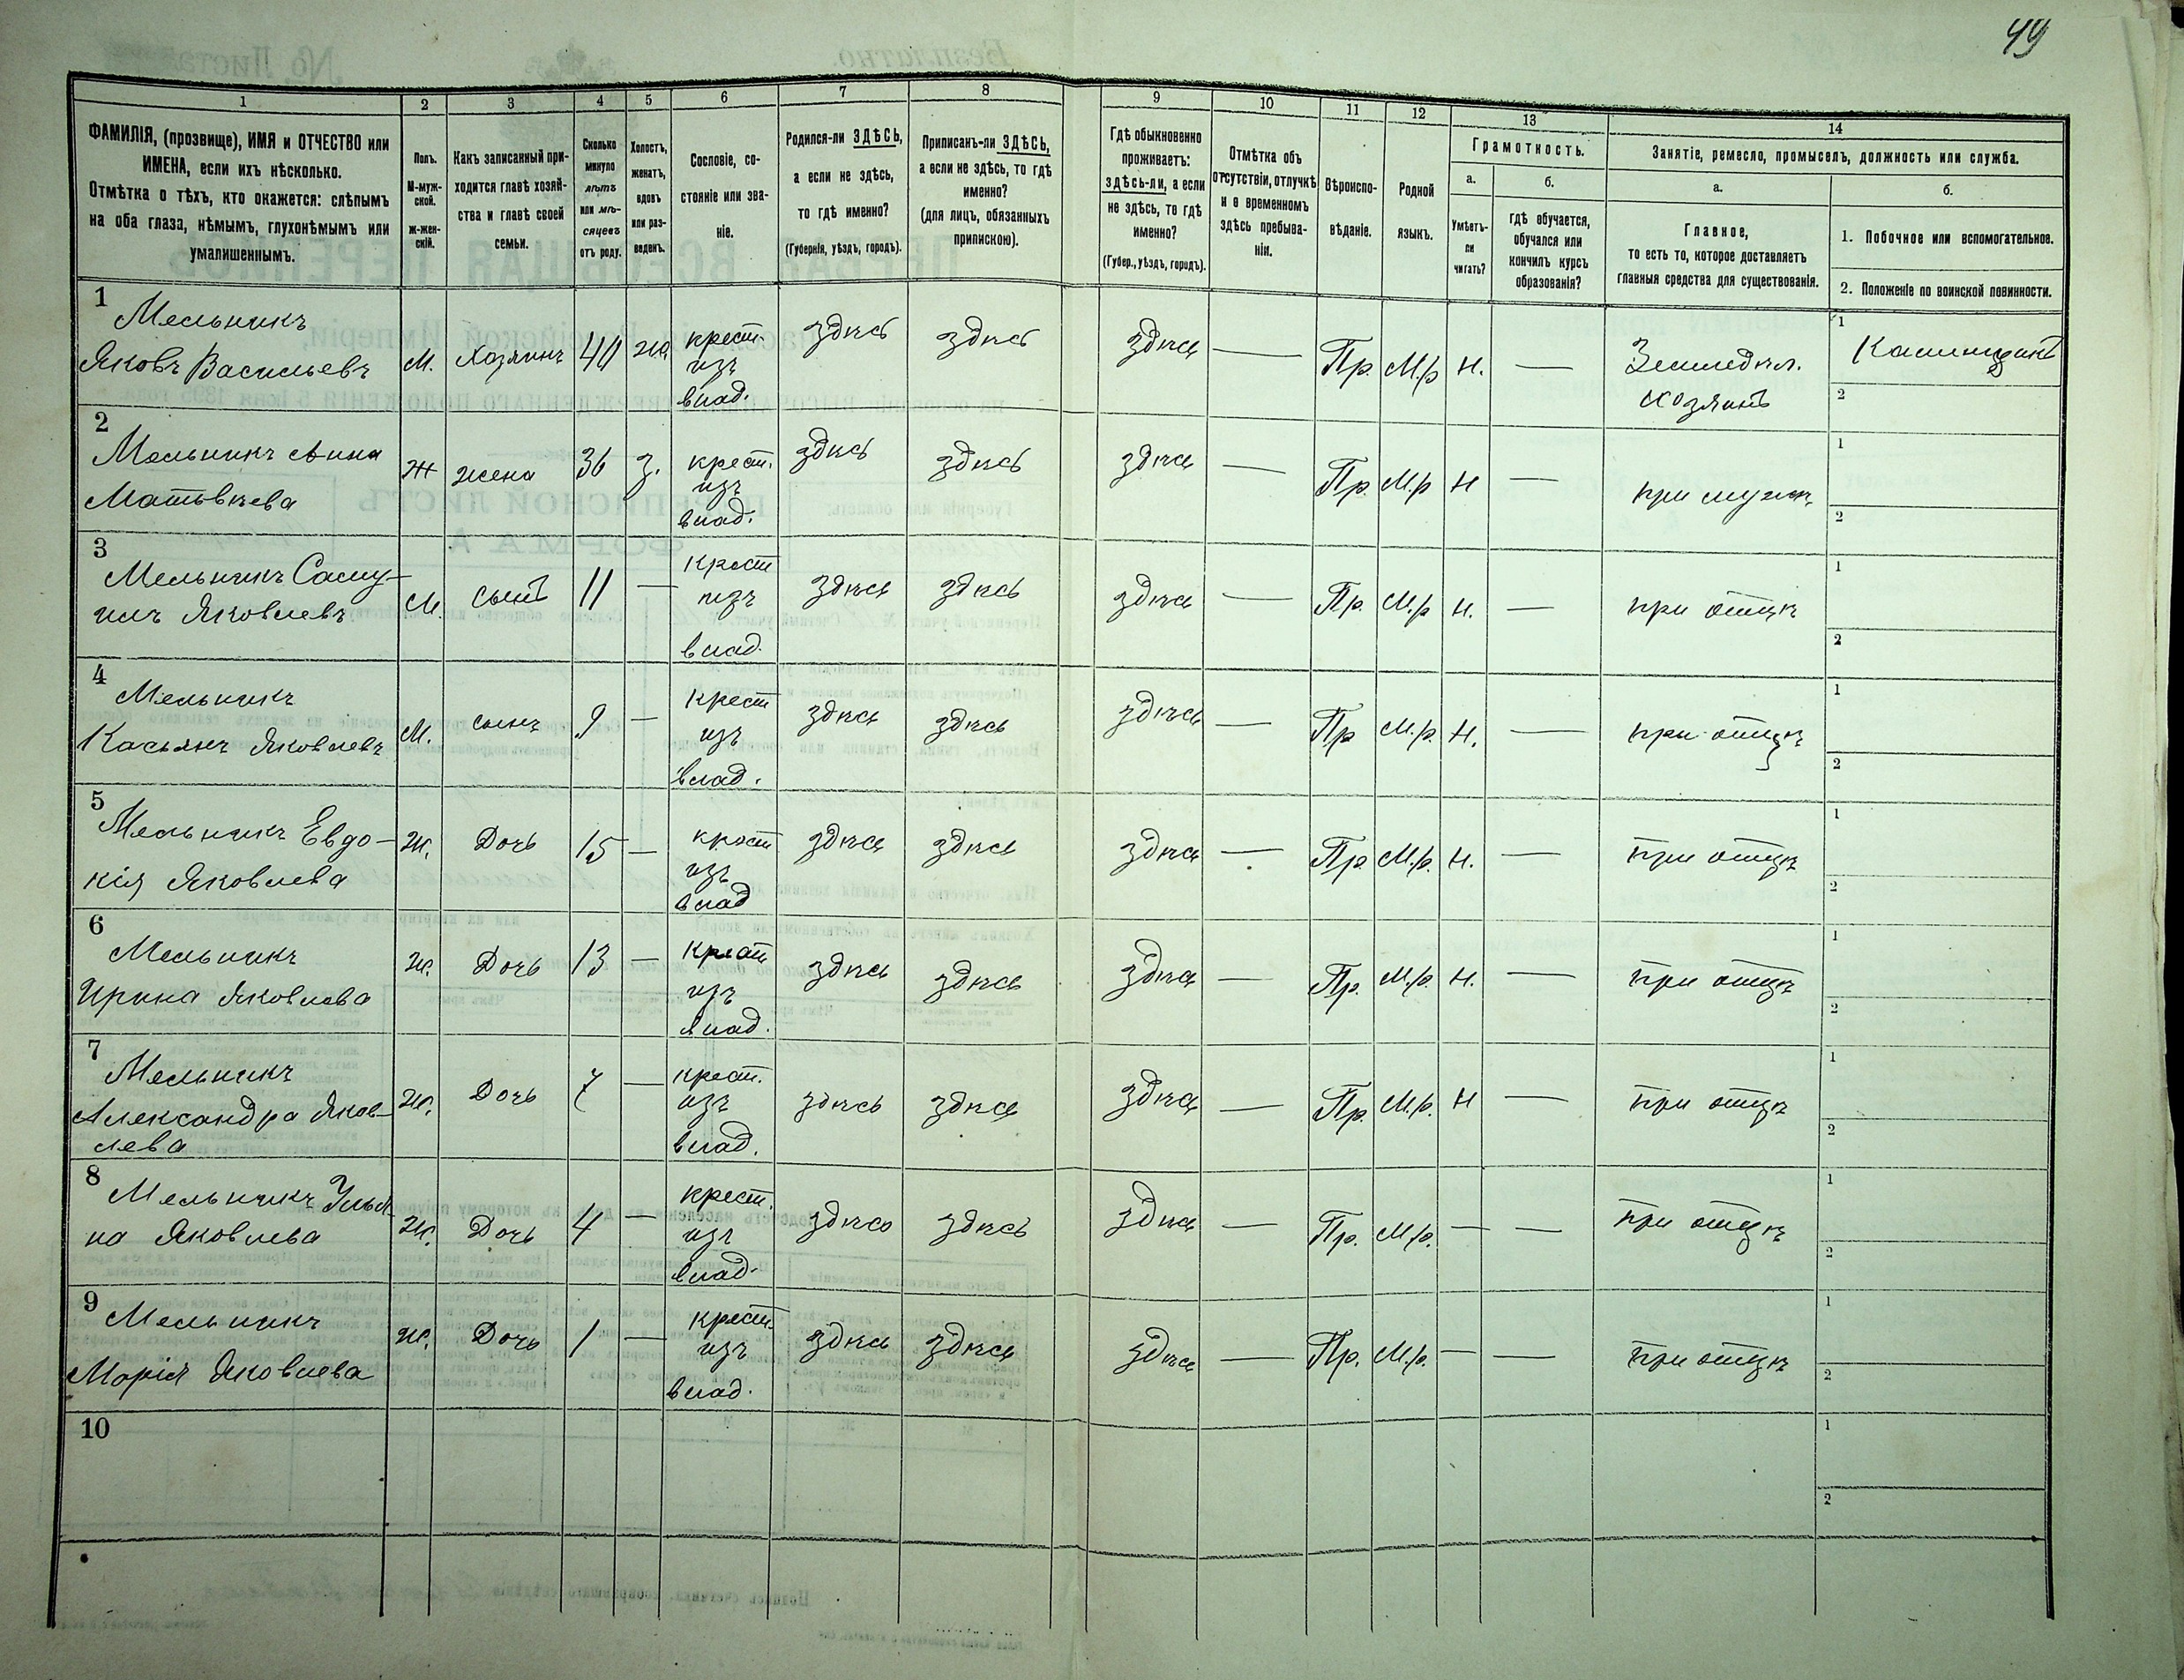 49
1 2 3 4 5 6 7 8 9 10 11 12 13 14
ФАМИЛІЯ, (прозвище), ИМЯ и ОТЧЕСТВО или
ИМЕНА, если ихъ нѣсколько.
Отмѣтка о тѣхъ, кто окажется: слѣпымъ
на оба глаза, нѣмымъ, глухонѣмымъ или
умалишеннымъ.
Полъ.
М-муж-
ской.
Ж-жен-
скій.
Какъ записанный при-
ходится главѣ хозяй-
ства и главѣ своей
семьи.
Сколько
минуло
лѣтъ
или мѣ-
сяцевъ
отъ роду.
Холостъ,
женатъ,
вдовъ
или раз-
веденъ.
Сословіе, со-
стояніе или зва-
ніе.
Родился-ли ЗДѢСЬ,
а если не здѣсь,
то гдѣ именно?
(Губернія, уѣздъ, городъ).
Приписанъ-ли ЗДѢСЬ,
а если не здѣсь, то гдѣ
именно?
(для лицъ, обязанныхъ
припискою).
Гдѣ обыкновенно
проживаетъ:
здѣсь-ли, а если
не здѣсь, то гдѣ
именно?
(Губер., уѣздъ, городъ).
Отмѣтка объ
отсутствіи, отлучкѣ
и о временномъ
здѣсь пребыва-
ніи.
Вѣроиспо-
вѣданіе.
Родной
языкъ.
Грамотность.
а.
Умѣетъ-
ли
читать?
б.
гдѣ обучается,
обучался или
кончилъ курсъ
образованія?
Занятіе, ремесло, промыселъ, должность или служба.
а.
Главное,
то есть то, которое доставляетъ
главныя средства для существованія.
б.
1. Побочное или вспомогательное.
2. Положеніе по воинской повинности.
1
Мельникъ
Яковъ Васильевъ М. Хозяинъ 40 ж. крест. здѣсь здѣсь здѣсь — Пр. М.р Н. — Земледѣл. 1
изъ
влад. хозяинъ 2
2
Мельникъ Анна Ж жена 36 З. крест. здѣсь здѣсь здѣсь — Пр. М.р Н — при муж. 1
Матвѣева изъ
влад. 2
3
Мельникъ Саму- М. сынъ 11 — Крест здѣсь здѣсь здѣсь — Пр. М.р Н. — при отцѣ 1
илъ Яковлевъ изъ
влад. 2
4
Мельникъ
Касьянъ Яковлевъ М. сынъ 9 — Крест здѣсь здѣсь здѣсь — Пр М.р. Н. — при отцѣ 1
изъ
влад. 2
5
Мельникъ Евдо- Ж. Дочь 15 — крест здѣсь здѣсь здѣсь — Пр. М.р. Н. — при отцѣ 1
кія Яковлева изъ
влад 2
6
Мельникъ
Ирина Яковлева Ж. Дочь 13 — Крест здѣсь здѣсь здѣсь — Пр. М.р. Н. — при отцѣ 1
изъ
влад. 2
7
Мельникъ
Александра Яков- Ж. Дочь 7 — крест. здѣсь здѣсь здѣсь — Пр. М.р. Н — при отцѣ 1
лева изъ
влад. 2
8
Мельникъ Улья- Ж. Дочь 4 — крест. здѣсь здѣсь здѣсь — Пр. М.р. — — при отцѣ 1
на Яковлева изъ
влад. 2
9
Мельникъ
Марія Яковлева Ж. Дочь 1 — крест. здѣсь здѣсь здѣсь — Пр. М.р. — — при отцѣ 1
изъ
влад. 2
10
1
2